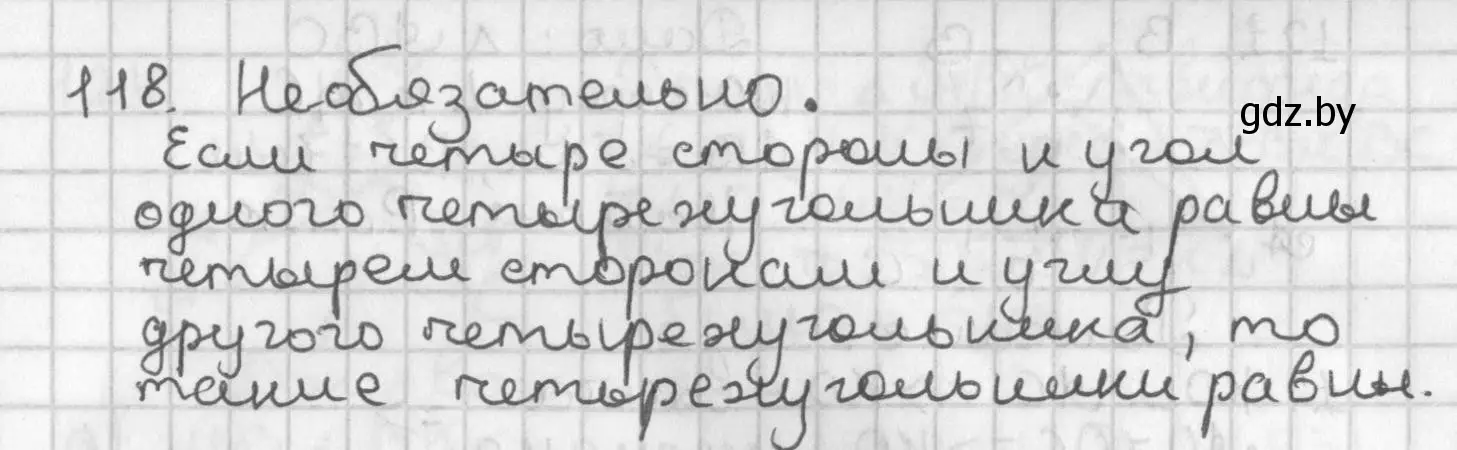 118. Необязательно.
gdz.by
Если четыре стороны и угол
одного четырехугольника равны
четырем сторонам и углу
другого четырехугольника, то
такие четырехугольники равны.